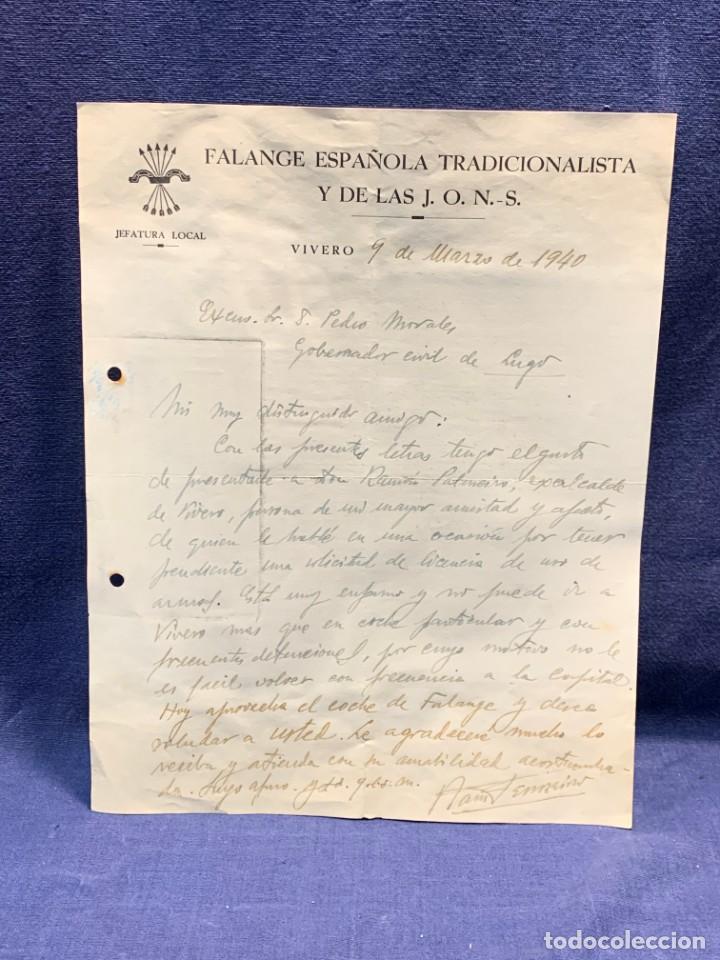 FALANGE ESPAÑOLA TRADICIONALISTA
Y DE LAS J. O. N.-S.
JEFATURA LOCAL
VIVERO 9 de Marzo de 1940
Excmo. Sr. D. Pedro Morales
Gobernador civil de Lugo
Mi muy distinguido amigo:
Con las presentes letras tengo el gusto
de presentarle a Don Ramón, exalcalde
de Vivero, persona de mi mayor amistad y afecto,
de quien le hablé en una ocasión por tener
pendiente una solicitud de licencia de uso de
armas. Está muy enfermo y no puede ir a
Vivero mas que en coche particular y con
frecuentes detenciones, por cuyo motivo no le
es fácil volver con frecuencia a la Capital.
Hoy aprovecha el coche de Falange y desea
saludar a usted. Le agradeceré mucho lo
reciba y atienda con su amabilidad acostumbra-
da. Suyo afmo. q.e.s.m.
todocoleccion